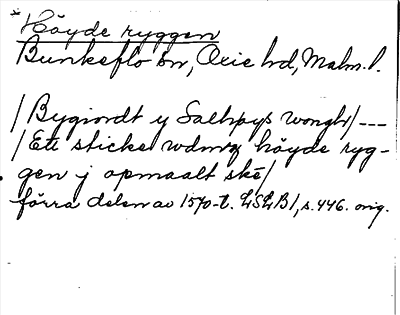 Höyde ryggen
Bunkeflo sn, Oxie hd, Malm. l.
/ Bygiordt y Saltzøys wongh / ---
/ Ett sticke wdmz höyde ryg-
gen j opmaalt skē /
förra delen av 1570-t. LSLB 1, s. 446. orig.